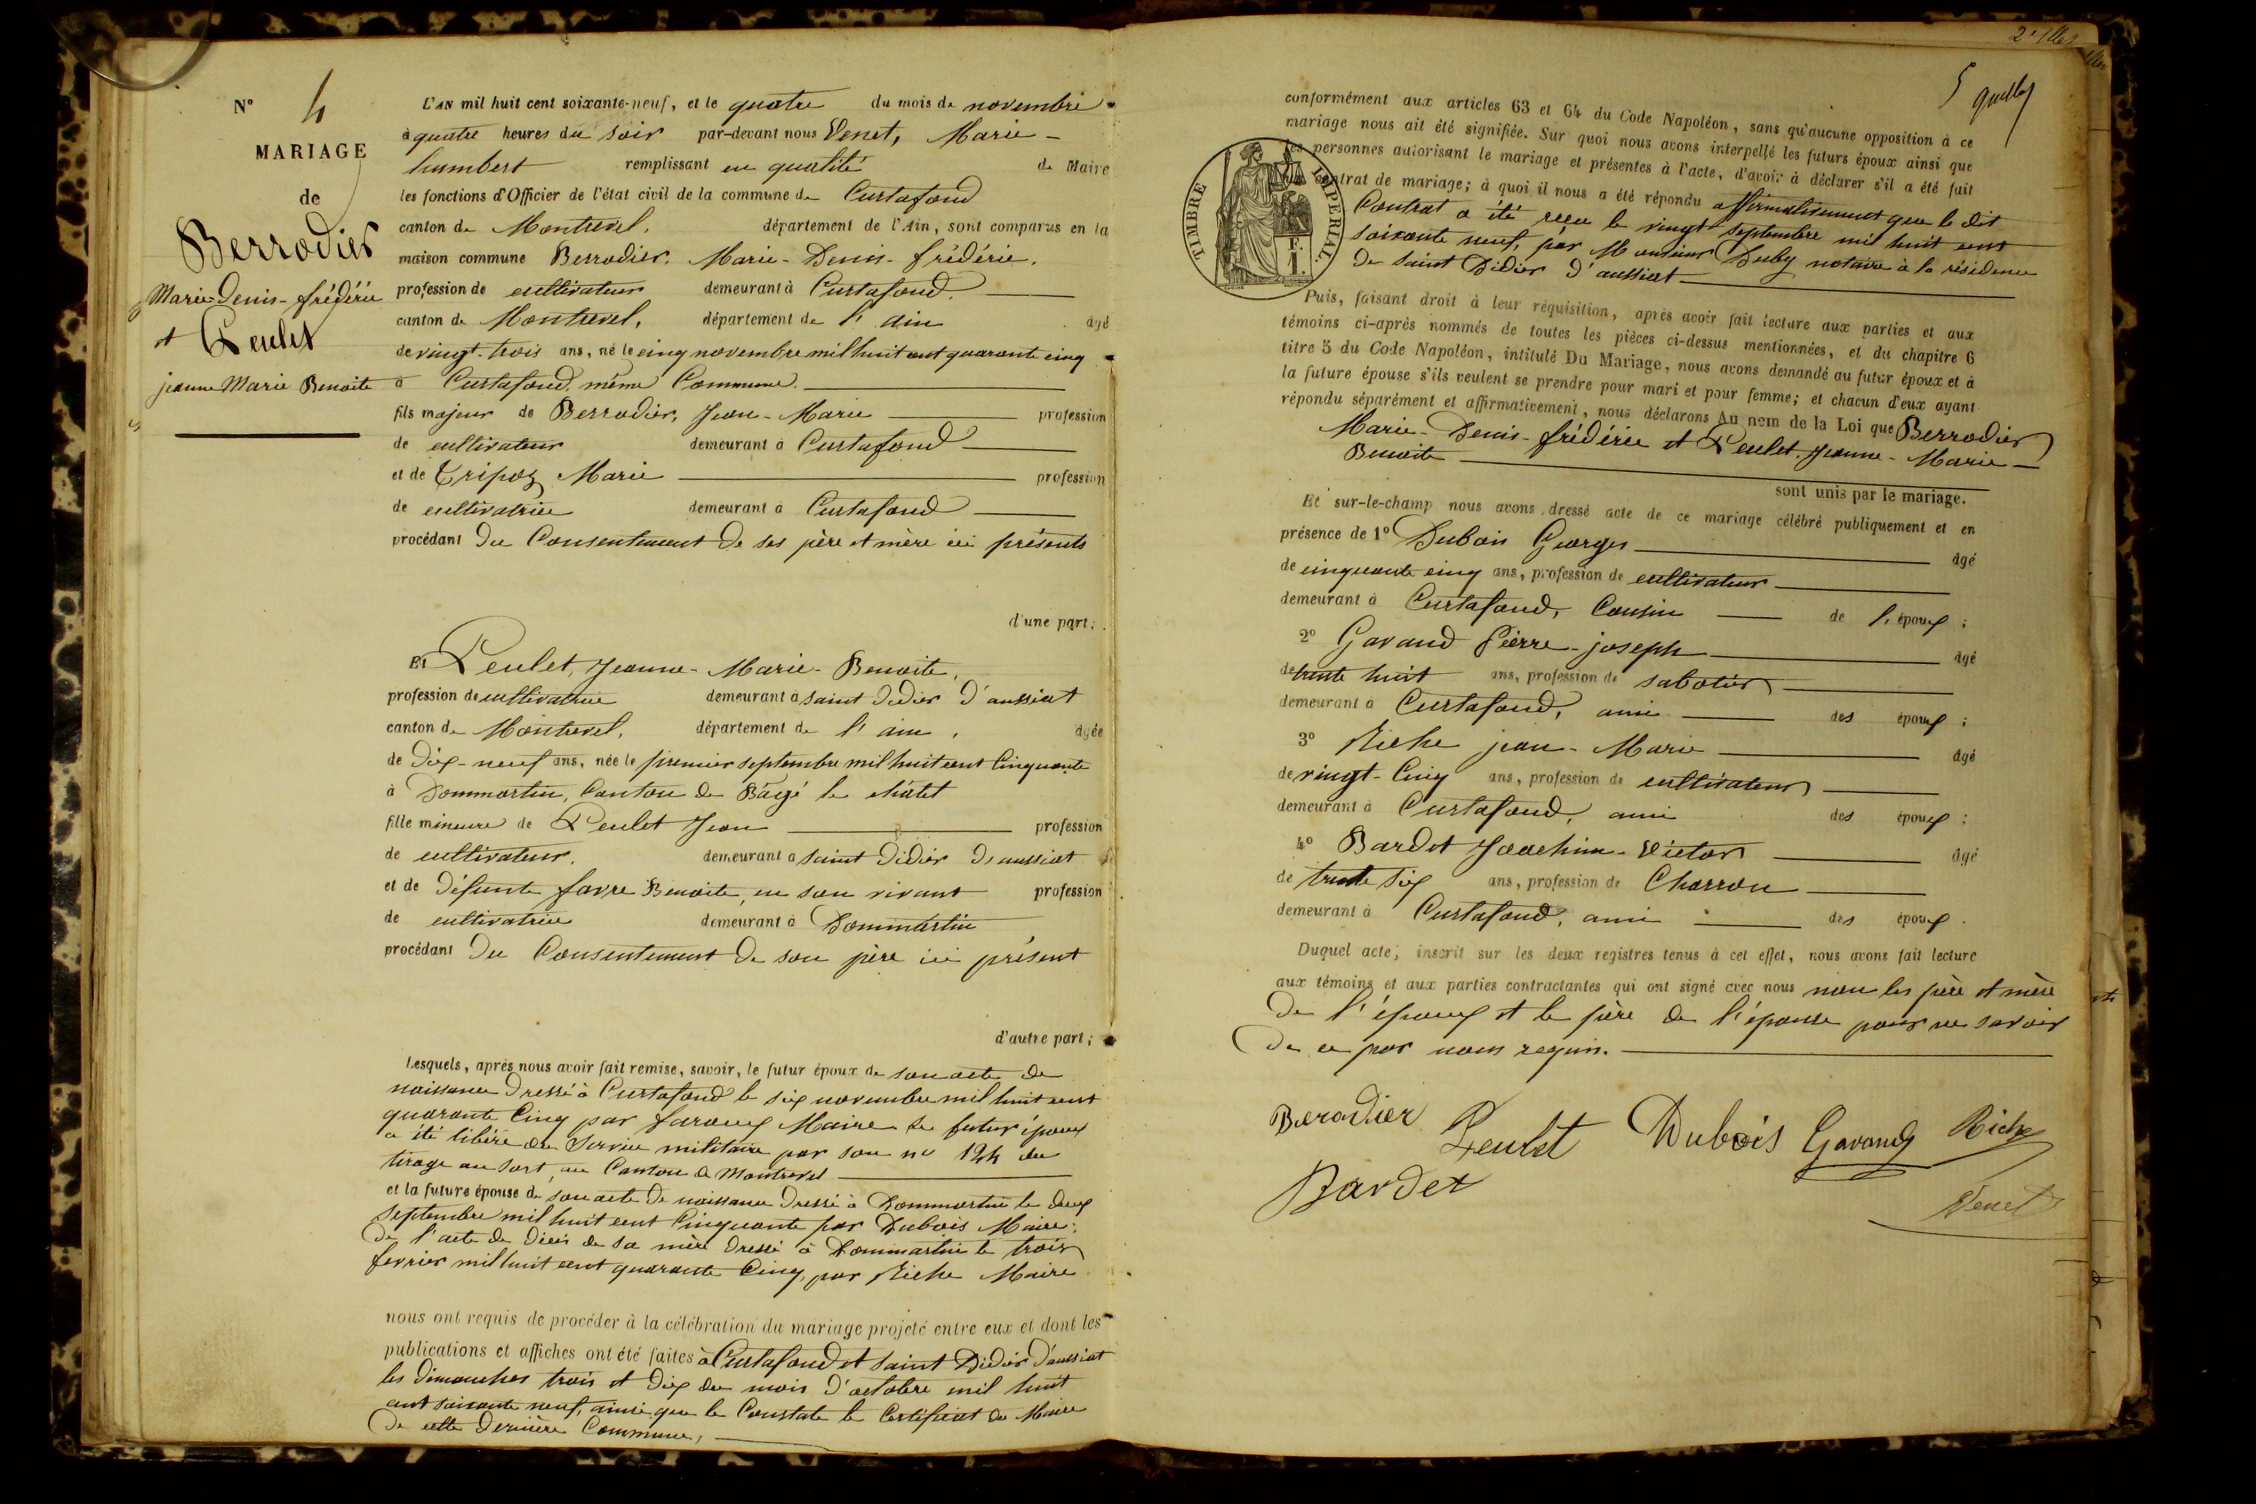 N° 4
MARIAGE
de
Berrodier
Marie Denis-frédéric
et Peulet
jeanne Marie Benoite
L'AN mil huit cent soixante-neuf, et le quatre du mois de novembre
à quatre heures du soir par-devant nous Venet, Marie-
humbert remplissant en qualité de Maire
les fonctions d'Officier de l'état civil de la commune de Curtafond
canton de Montrevel, département de l'Ain, sont comparus en la
maison commune Berrodier, Marie-Denis-frédéric,
profession de cultivateur demeurant à Curtafond,
canton de Montrevel, département de l'ain âgé
de vingt-trois ans, né le cinq novembre mil huit cent quarante cinq
à Curtafond, même Commune.
fils majeur de Berrodier, Jean-Marie profession
de cultivateur demeurant à Curtafond
et de Tripoz Marie profession
de cultivatrice demeurant à Curtafond
procédant du Consentement de ses père et mère ici présents
d'une part;
Et Peulet, Jeanne-Marie-Benoite,
profession de cultivatrice demeurant à saint Didier d'aussiat
canton de Montrevel, département de l'ain, âgée
de dix-neuf ans, née le premier septembre mil huit cent Cinquante
à Dommartin, Canton de Bâgé le châtel
fille mineure de Peulet Jean profession
de cultivateur, demeurant à saint Didier d'aussiat
et de défunte favre Benoite, en son vivant profession
de cultivatrice demeurant à Dommartin
procédant du Consentement de son père ici présent
d'autre part;
Lesquels, après nous avoir fait remise, savoir, le futur époux de son acte de
naissance dressé à Curtafond le six novembre mil huit cent
quarante Cinq par faroux Maire le futur époux
a été libéré du Service militaire par son n° 124 du
tirage au sort, au Canton de Montrevel
et la future épouse de son acte de naissance dressé à Dommartin le deux
septembre mil huit cent Cinquante par Dubois Maire;
de l'acte de décès de sa mère dressé à Dommartin le trois
fevrier mil huit cent quarante Cinq, par Riche Maire
nous ont requis de procéder à la célébration du mariage projeté entre eux et dont les
publications et affiches ont été faites à Curtafond et saint Didier d'aussiat
les dimanches trois et dix du mois d'octobre mil huit
cent soixante neuf, ainsi que le Constate le Certificat du Maire
de cette dernière Commune,
conformément aux articles 63 et 64 du Code Napoléon, sans qu'aucune opposition à ce
mariage nous ait été signifiée. Sur quoi nous avons interpellé les futurs époux ainsi que
les personnes autorisant le mariage et présentes à l'acte, d'avoir à déclarer s'il a été fait
contrat de mariage; à quoi il nous a été répondu affirmativement que le dit
Contrat a été reçu le vingt septembre mil huit cent
soixante neuf, par Monsieur Duby notaire à la résidence
de saint Didier d'aussiat
TIMBRE IMPERIAL.
F.
1.
Puis, faisant droit à leur réquisition, après avoir fait lecture aux parties et aux
témoins ci-après nommés de toutes les pièces ci-dessus mentionnées, et du chapitre 6
titre 5 du Code Napoléon, intitulé Du Mariage, nous avons demandé au futur époux et à
la future épouse s'ils veulent se prendre pour mari et pour femme; et chacun d'eux ayant
répondu séparément et affirmativement, nous déclarons Au nom de la Loi que Berrodier
Marie-Denis-frédéric et Peulet, Jeanne-Marie-
Benoite
sont unis par le mariage.
Et sur-le-champ nous avons dressé acte de ce mariage célébré publiquement et en
présence de 1° Dubois Georges âgé
de cinquante cinq ans, profession de cultivateur
demeurant à Curtafond, Cousin de l'époux;
2° Gavand Pierre-joseph âgé
de trente huit ans, profession de sabotier
demeurant à Curtafond, ami des époux;
3° Riche jean-Marie âgé
de vingt-Cinq ans, profession de cultivateur
demeurant à Curtafond, ami des époux;
4° Bardet Joachim-Victor âgé
de trente six ans, profession de Charron
demeurant à Curtafond, ami des époux.
Duquel acte, inscrit sur les deux registres tenus à cet effet, nous avons fait lecture
aux témoins et aux parties contractantes qui ont signé avec nous non les père et mère
de l'époux et le père de l'épouse pour ne savoir
de ce par nous requis.
Berodier Peulet Dubois Gavand Riche
Bardet
Venet